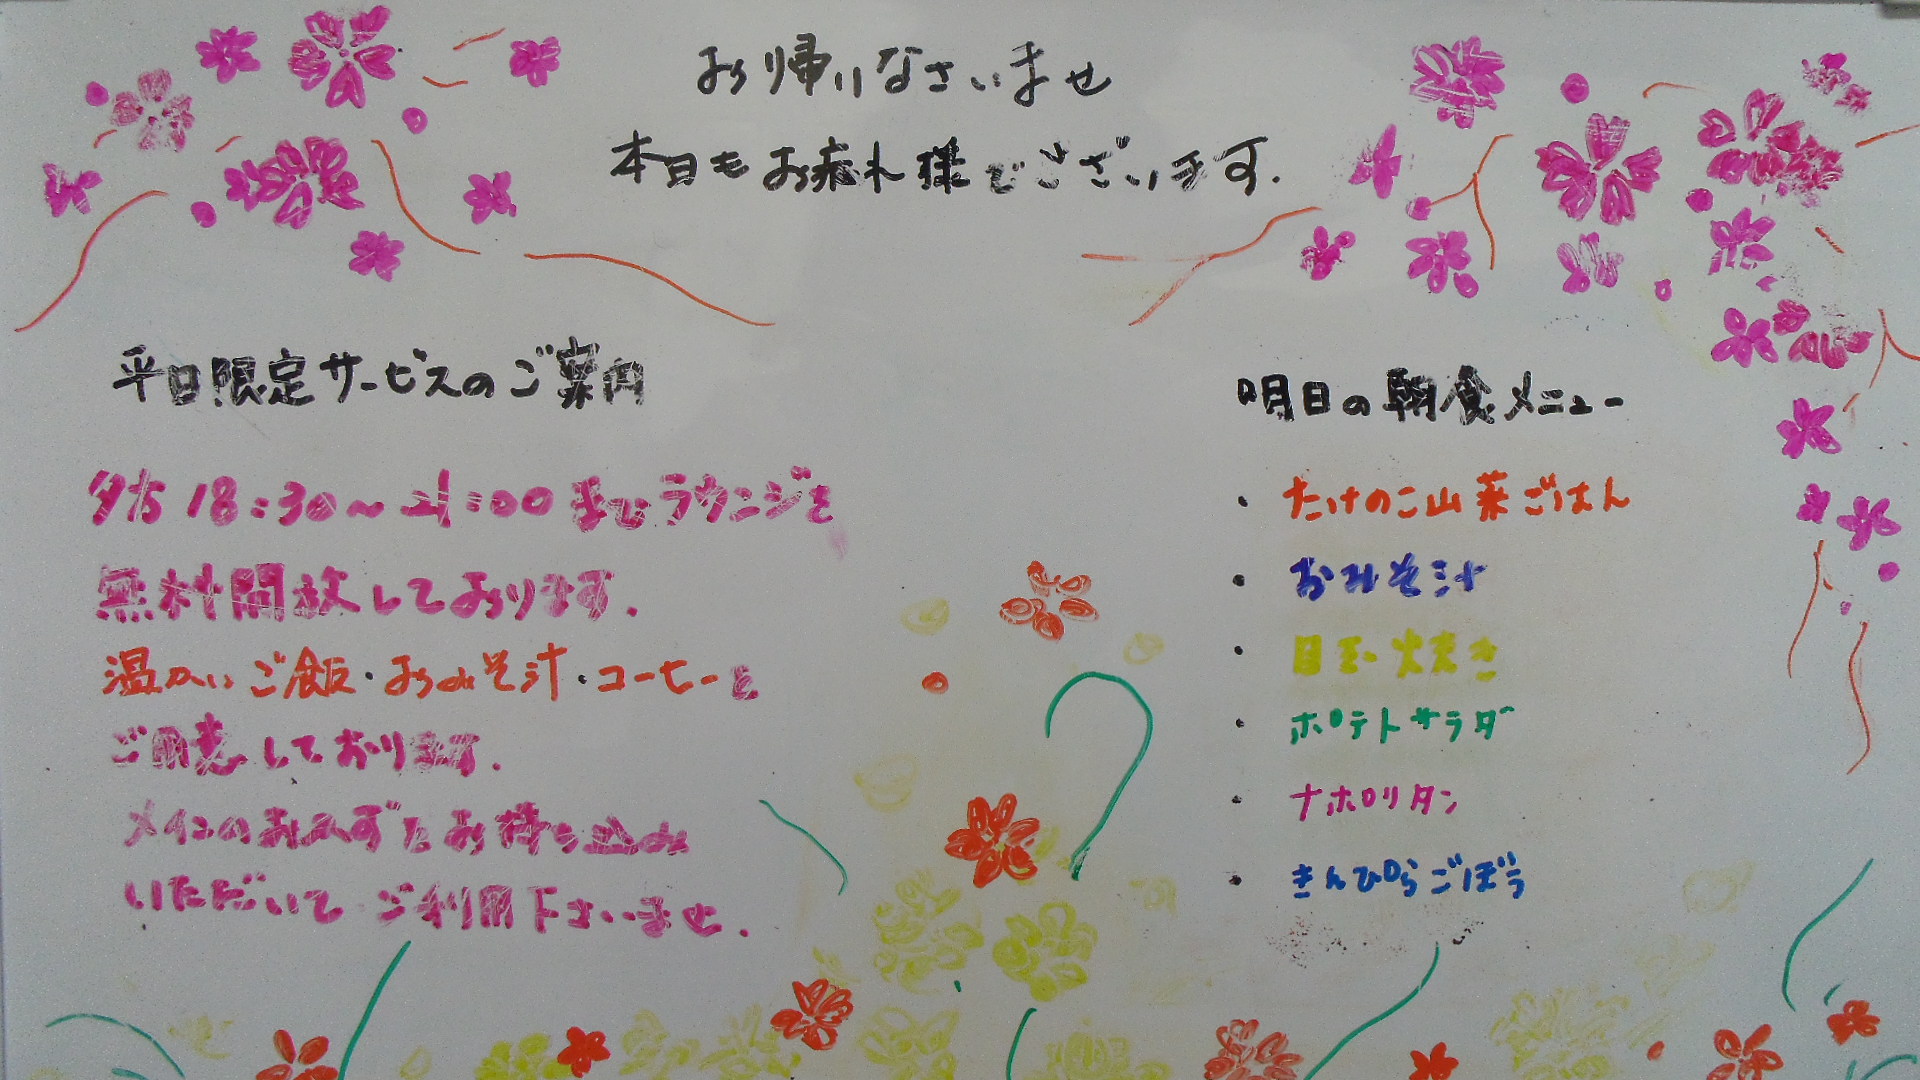 お帰りなさいませ
本日もお疲れ様でございます.
平日限定サービスのご案内
夕方 18:30〜21:00までラウンジを
無料開放しております.
温かいご飯・おみそ汁・コーヒーを
ご用意しております.
メインのおかずをお持ち込み
いただいて ご利用下さいませ.
明日の朝食メニュー
・たけのこ山菜ごはん
・おみそ汁
・目玉焼き
・ポテトサラダ
・ナポリタン
・きんぴらごぼう